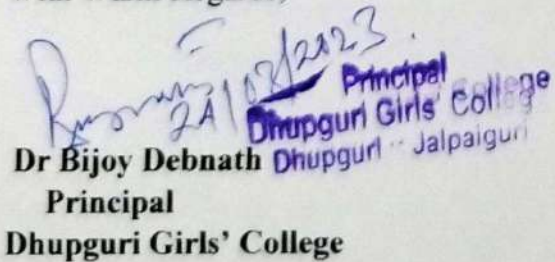 24/03/2023.
Principal
Dhupguri Girls' College
Dhupguri - Jalpaiguri
Dr Bijoy Debnath
Principal
Dhupguri Girls' College